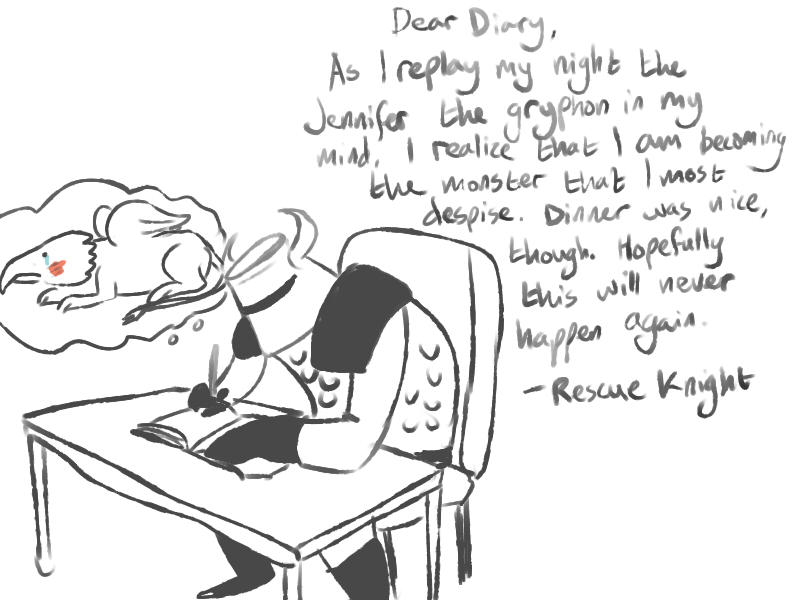 Dear Diary,
As I replay my night the
Jennifer the gryphon in my
mind, I realize that I am becoming
the monster that I most
despise. Dinner was nice,
though. Hopefully
this will never
happen again.
- Rescue Knight